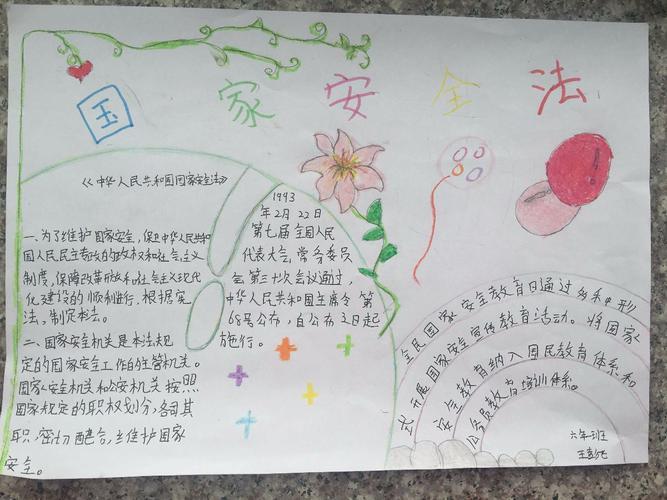 国家安全法
《中华人民共和国国家安全法》
一、为了维护国家安全,保卫中华人民共和
国人民民主专政的政权和社会主义
制度,保障改革开放和社会主义现代
化建设的顺利进行,根据宪
法,制定本法。
二、国家安全机关是本法规
定的国家安全工作的主管机关。
国家安全机关和公安机关按照
国家规定的职权划分,各司其
职,密切配合,维护国家
安全。
1993
年2月22日
第七届全国人民
代表大会,常务委员
会第三十次会议通过,
中华人民共和国主席令第
68号公布,自公布之日起
施行。
全民国家安全教育日通过多种形
式开展国家安全宣传教育活动。将国家
安全教育纳入国民教育体系和
公务员教育培训体系。
六年班
王